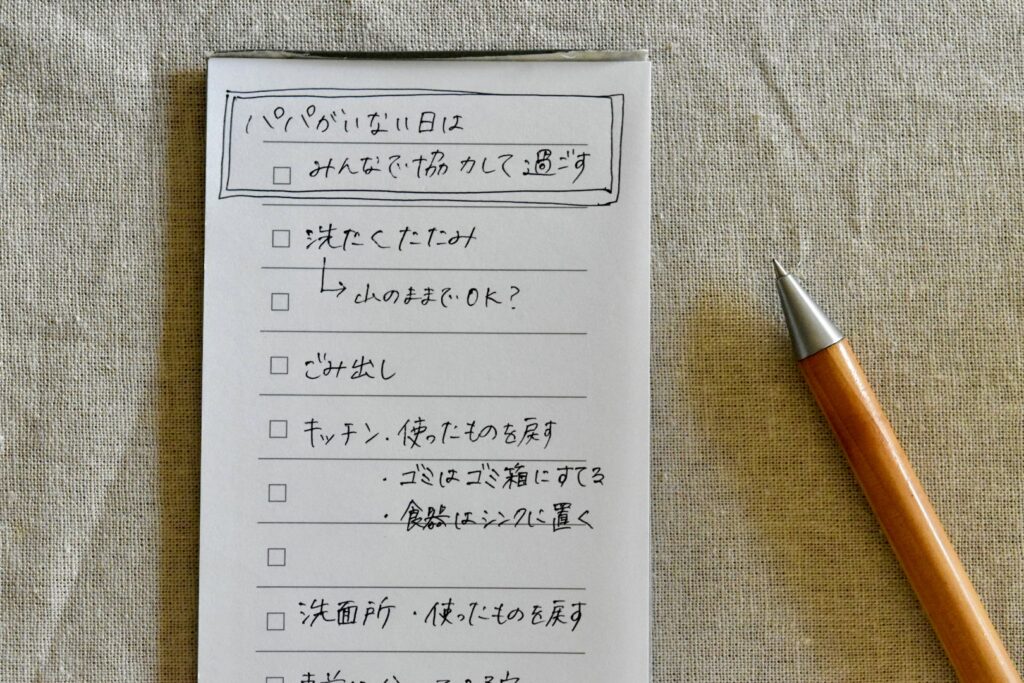 パパがいない日は
みんなで協力して過ごす
洗だくたたみ
山のままでOK?
ごみ出し
キッチン・使ったものを戻す
・ゴミはゴミ箱にすてる
・食器はシンクに置く
洗面所・使ったものを戻す